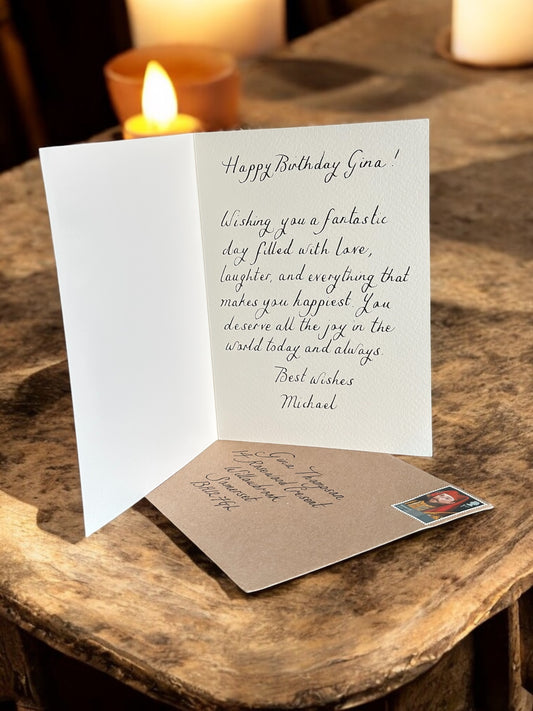 Happy Birthday Gina!
Wishing you a fantastic
day filled with love,
laughter, and everything that
makes you happiest. You
deserve all the joy in the
world today and always.
Best wishes
Michael
Gina Thompson
Rosewood Cresent
Somerset